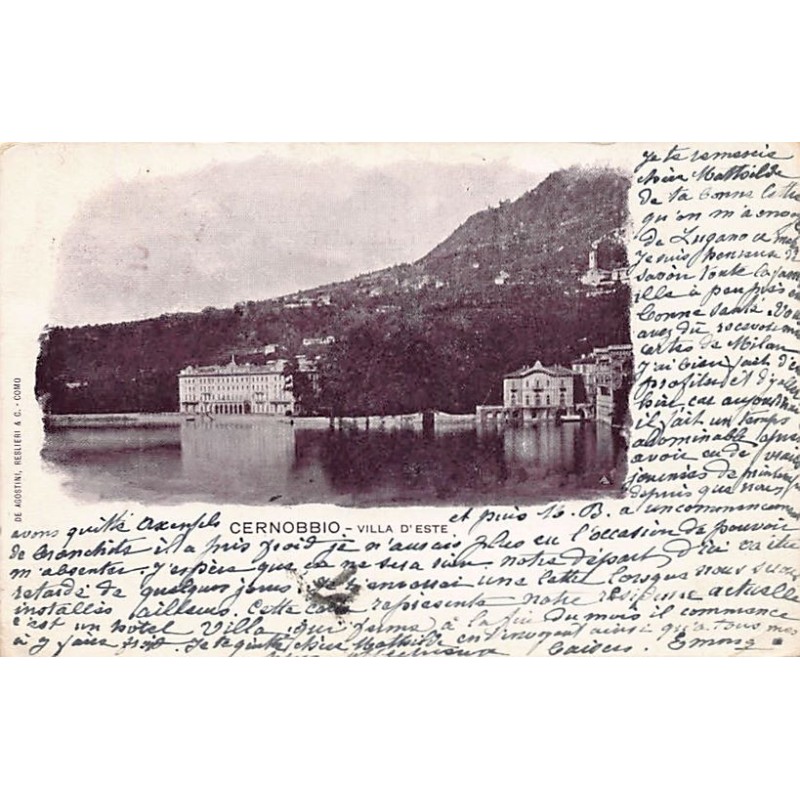 Je te remercie
chère Mathilde
de ta bonne lettre
qu'on m'a envoyé
de Lugano
Je suis heureuse de
savoir toute la fami
ille à peu près
bonne santé. Vous
avez dû recevoir
cartes de Milan
J'ai bien fait d'en
profiter et d'y aller
hier car aujourd'hui
il fait un temps
abominable après
avoir eu de vraies
journées de printemps
depuis que nous
avons quitté Axenfels
et puis M. B. a un commencement
de bronchite il a pris froid je n'aurais plus eu l'occasion de pouvoir
m'absenter. J'espère que ce ne sera rien notre départ d'ici
retardé de quelques jours je t'enverrai une lettre lorsque nous serons
installés ailleurs. Cette carte représente notre résidence actuelle
c'est un hôtel Villa qui ferme à la fin du mois il commence
à y faire froid. Je te quitte chère Mathilde en t'envoyant ainsi qu'à tous mes
baisers. Emma
CERNOBBIO - VILLA D'ESTE
DE AGOSTINI, RESLIERI & C. - COMO